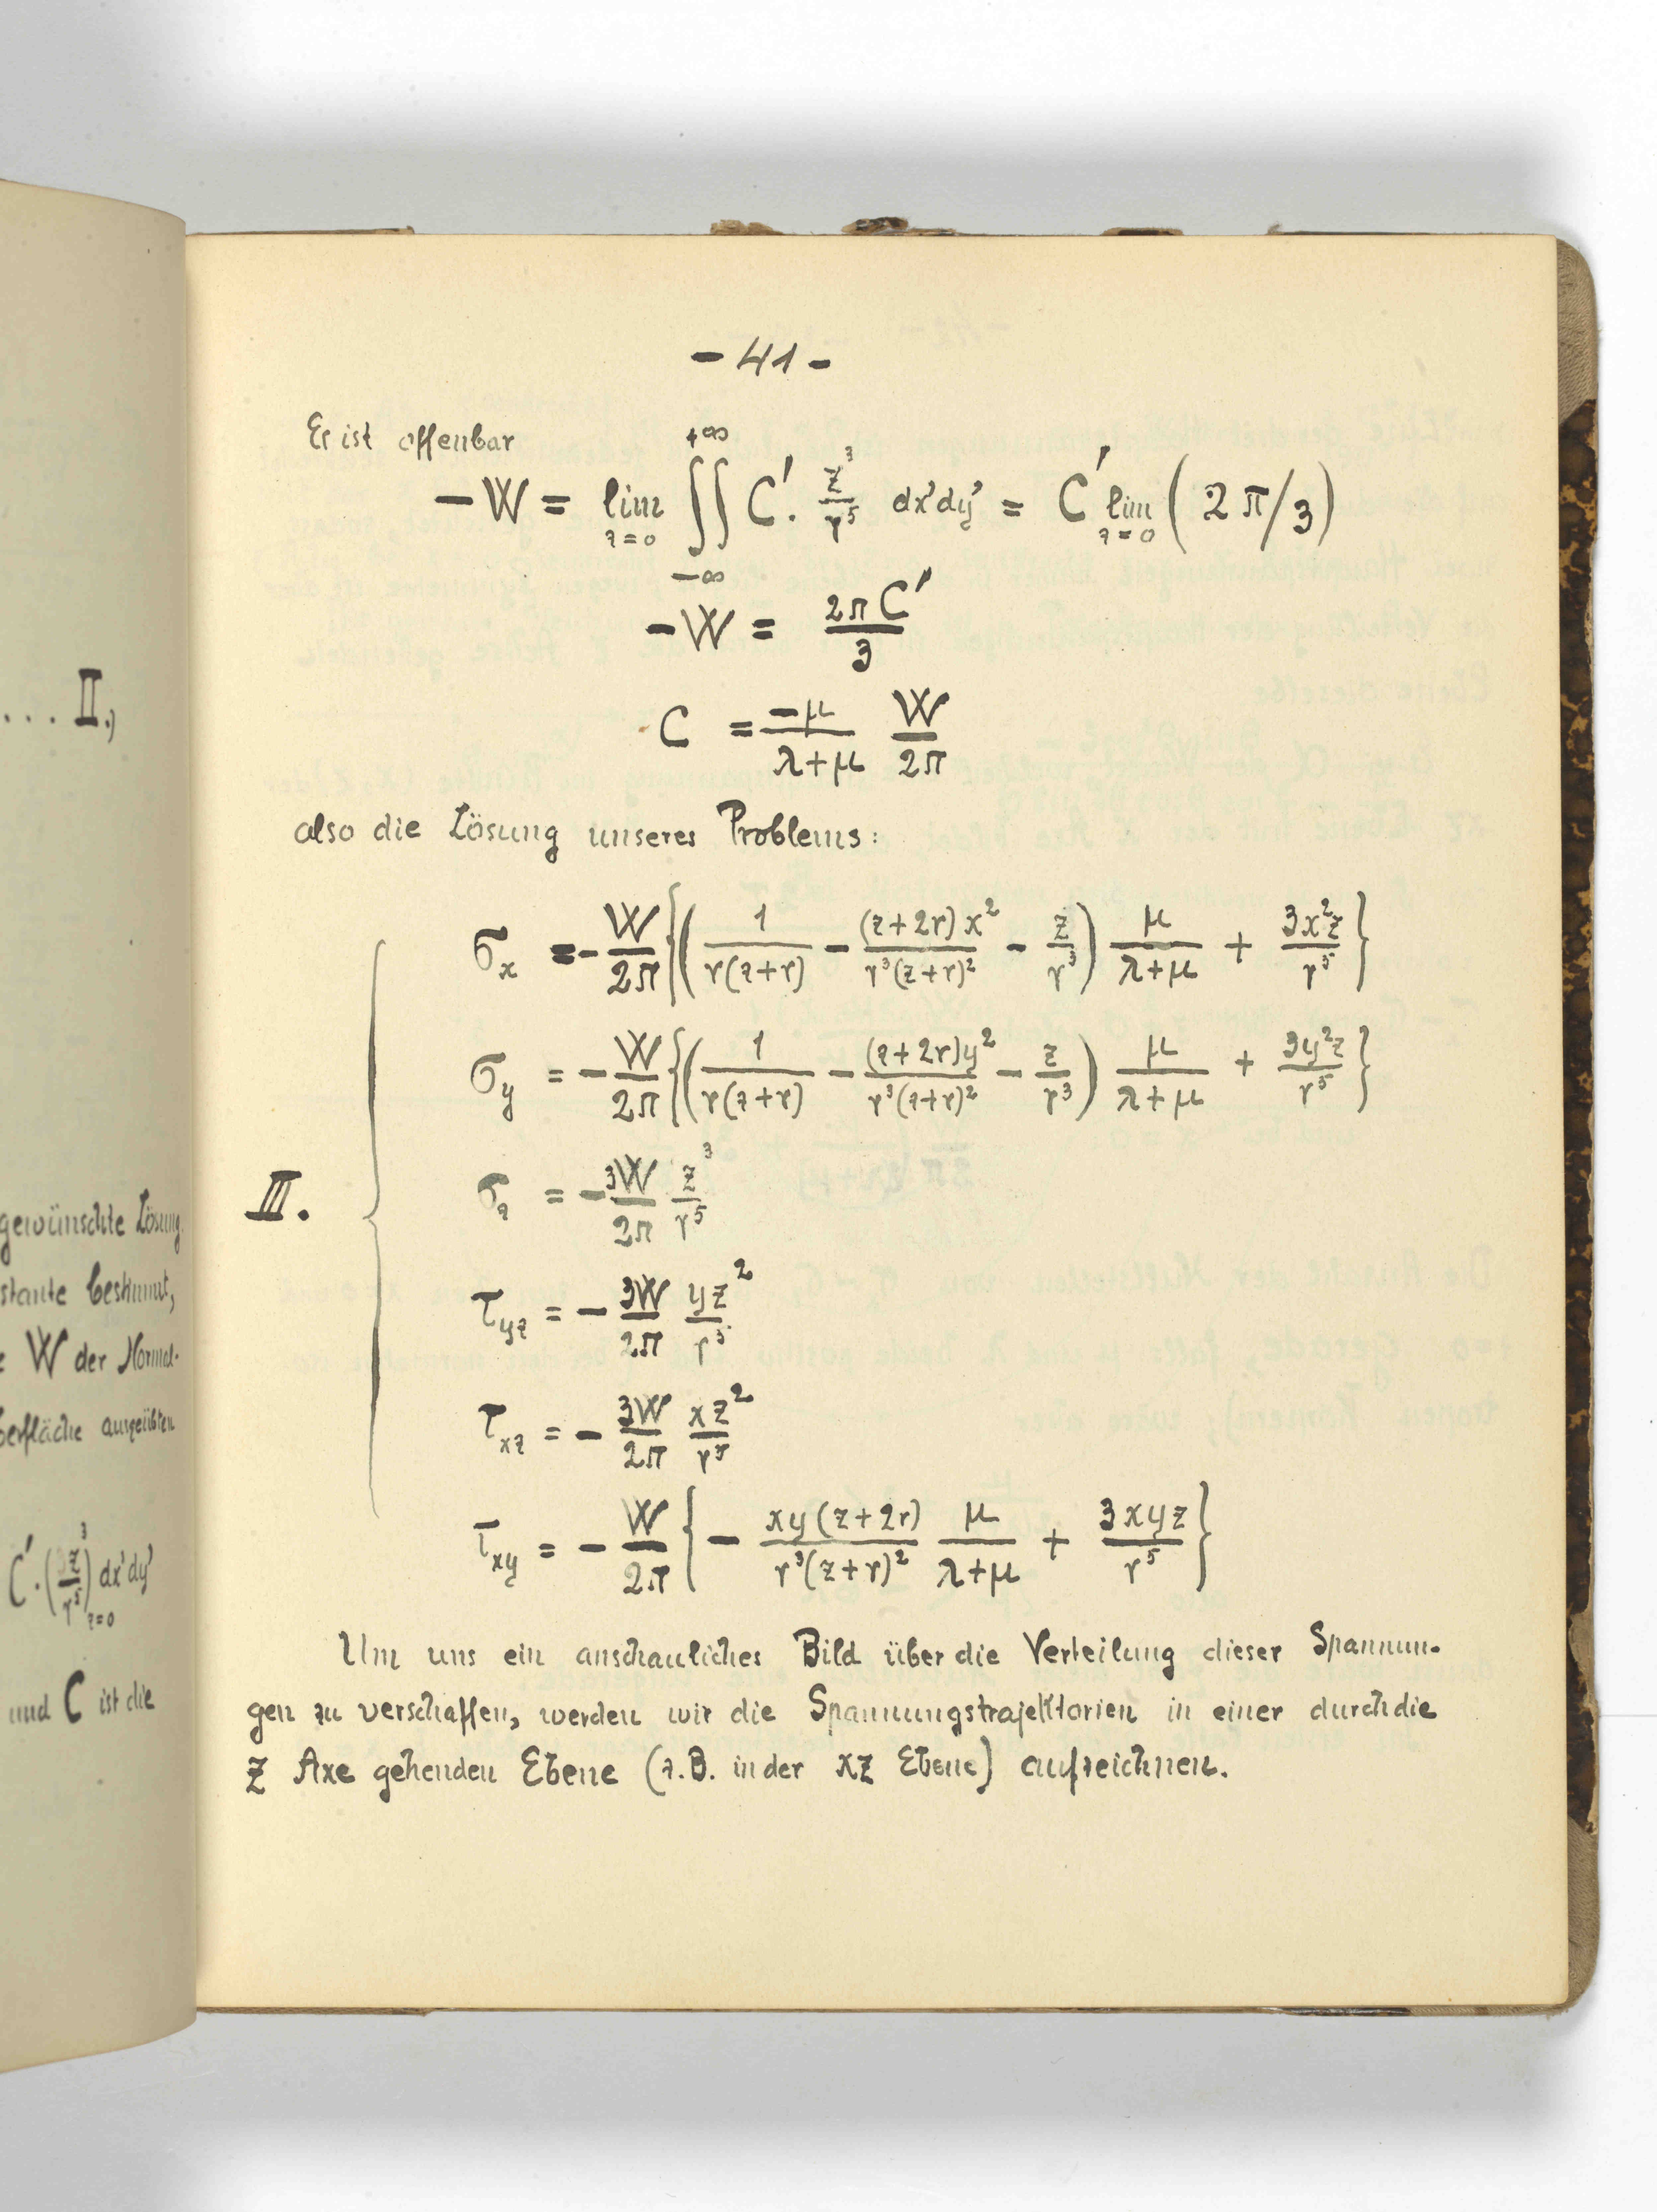 ... II.,
gewünschte Lösung
stante bestimmt,
W der Normal-
berfläche ausgeübten
C'·(3z³/r⁵)z=0 dx'dy'
und C ist die
- 41 -
Es ist offenbar
-W = lim z=0 ∫∫ +∞ -∞ C'. z³/r⁵ dx'dy' = C' lim z=0 (2π/3)
-W = 2πC'/3
C = -μ/λ+μ W/2π
also die Lösung unseres Problems:
σx = -W/2π {(1/r(z+r) - (z+2r)x²/r³(z+r)² - z/r³) μ/λ+μ + 3x²z/r⁵}
σy = -W/2π {(1/r(z+r) - (z+2r)y²/r³(z+r)² - z/r³) μ/λ+μ + 3y²z/r⁵}
III. σz = -3W/2π z³/r⁵
τyz = -3W/2π yz²/r⁵
τxz = -3W/2π xz²/r⁵
τxy = -W/2π {- xy(z+2r)/r³(z+r)² μ/λ+μ + 3xyz/r⁵}
Um uns ein anschauliches Bild über die Verteilung dieser Spannun-
gen zu verschaffen, werden wir die Spannungstrajektorien in einer durch die
Z Axe gehenden Ebene (z.B. in der XZ Ebene) aufzeichnen.